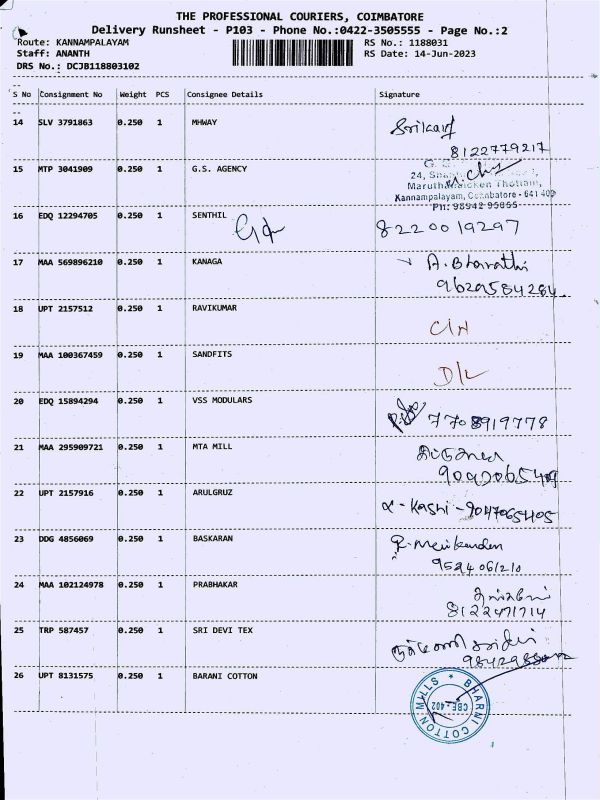 THE PROFESSIONAL COURIERS, COIMBATORE
Delivery Runsheet - P103 - Phone No.:0422-3505555 - Page No.:2
Route: KANNAMPALAYAM RS No.: 1188031
Staff: ANANTH RS Date: 14-Jun-2023
DRS No.: DCJB118803102
S No Consignment No Weight PCS Consignee Details Signature
14 SLV 3791863 0.250 1 MHWAY
8122779217
15 MTP 3041909 0.250 1 G.S. AGENCY
24,
Kannampalayam, Coimbatore - 641 402
Ph: 98942 95055
16 EDQ 12294705 0.250 1 SENTHIL 8220019297
17 MAA 569896210 0.250 1 KANAGA A. Bharathi
9629584284
18 UPT 2157512 0.250 1 RAVIKUMAR
19 MAA 100367459 0.250 1 SANDFITS
D/L
20 EDQ 15894294 0.250 1 VSS MODULARS 7708919778
21 MAA 295909721 0.250 1 MTA MILL
22 UPT 2157916 0.250 1 ARULGRUZ
Kashi - 9047065405
23 DDG 4856069 0.250 1 BASKARAN
24 MAA 102124978 0.250 1 PRABHAKAR
8122471714
25 TRP 587457 0.250 1 SRI DEVI TEX
26 UPT 8131575 0.250 1 BARANI COTTON
BHARNI COTTON MILLS
CBE-402